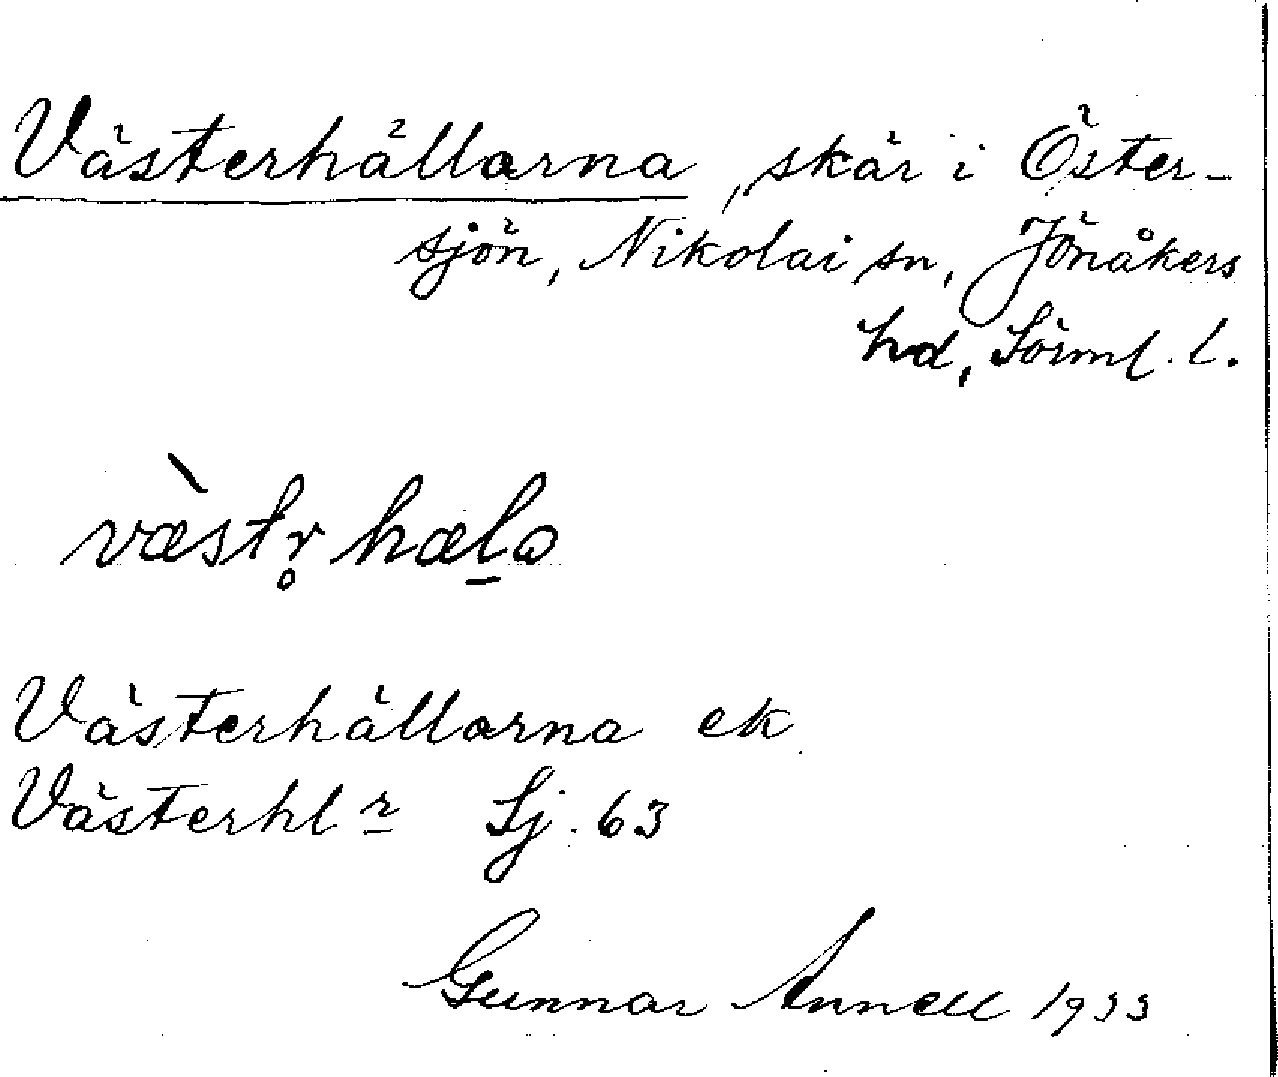 Västerhällarna, skär i Öster-
sjön, Nikolai sn, Jönåkers
hd, Sörml. l.
væ̀str̥ hæl̠ɷ
Västerhällarna ek
Västerhl r̲ Sj. 63
Gunnar Annell 1933